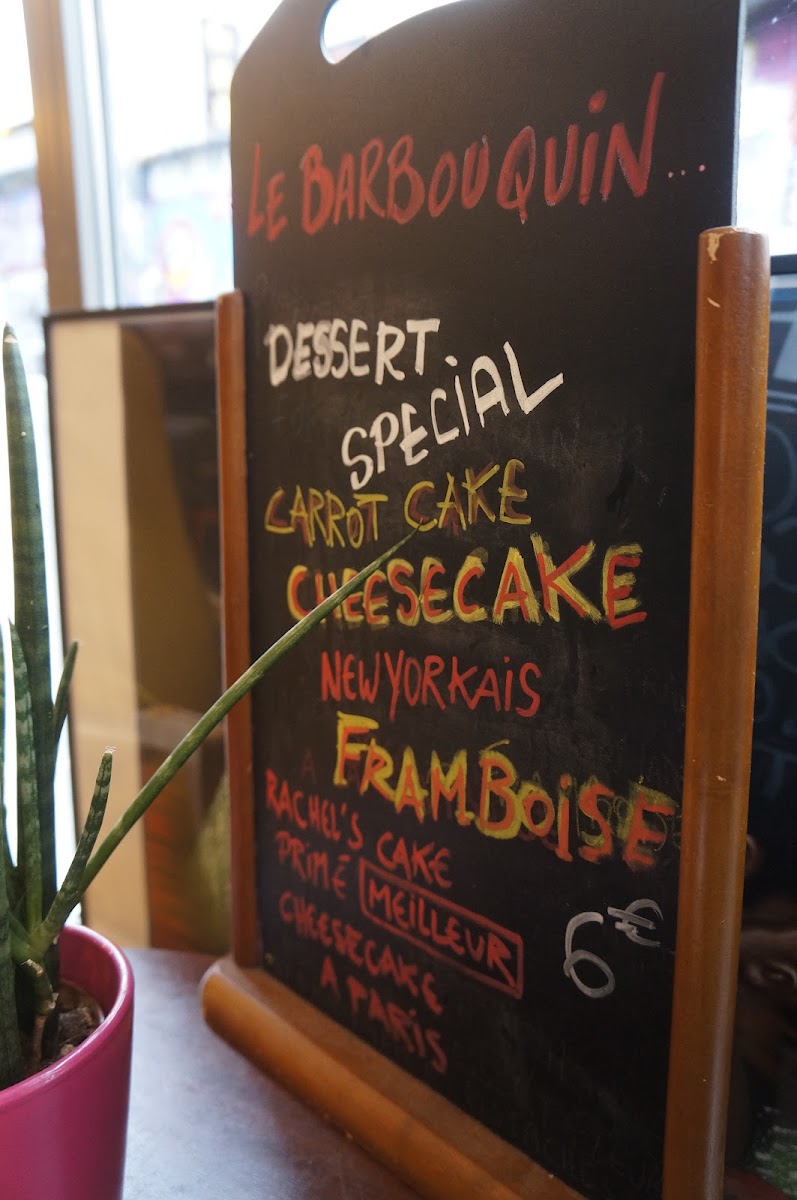 LE BARBOUQUIN...
DESSERT
SPECIAL
CARROT CAKE
CHEESECAKE
NEWYORKAIS
FRAMBOISE
RACHEL'S CAKE
PRIMÉ MEILLEUR
CHEESECAKE
A PARIS
6€